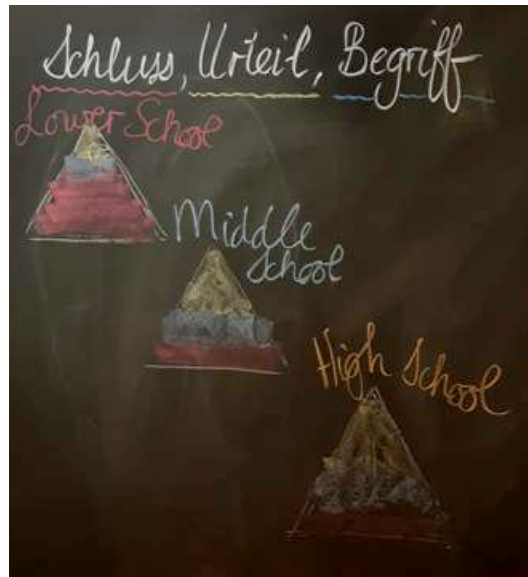 Schluss, Urteil, Begriff
Lower School
Middle
School
High School